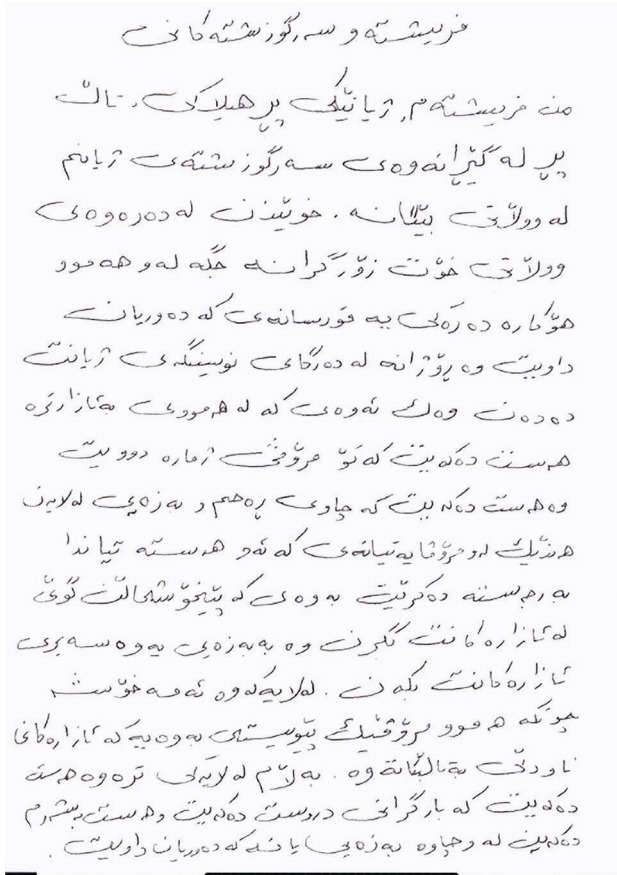 فریشتە و سەرگوزشتەکانی
من فریشتەم, ژیانێکی پڕ هیلاکی, تاڵ
پڕ لە گێڕانەوەی سەرگوزشتەی ژیانم
لە ووڵاتی بێگانە. خوێندن لە دەرەوەی
ووڵاتی خۆت زۆر گرانە جگە لەو هەموو
هۆکارە دەرەکی یە قورسانەی کە دەوریان
داویت وە ڕۆژانە لە دەرگای نوسینگەی ژیانت
دەدەن وەک ئەوەی کە لە هەمووی بەئازارترە
هەست دەکەیت کە تۆ مرۆڤی ژمارە دوویت
وە هەست دەکەیت کە چاوی ڕەحم و بەزەیی لەلایەن
هەندێک لەو مرۆڤایەتیانەی کە ئەو هەستە تیاندا
بەرجەستە دەکرێت بەوەی کە پێیخۆشحاڵن گوێ
لە ئازارەکانت بگرن وە بەبەزەیی یەوە سەیری
ئازارەکانت بکەن. لەلایەکەوە ئەمە خۆشە
چونکە هەموو مرۆڤێک پێویستی بەوەیە کە ئازارەکانی
ناودڵی بەتاڵبکاتەوە. بەڵام لەلایەکی ترەوە هەست
دەکەیت کە بارگرانی دروست دەکەیت وهەست بەشەرم
دەکەین لەو چاوە بەزەیی یانە کە دەوریان داویت.